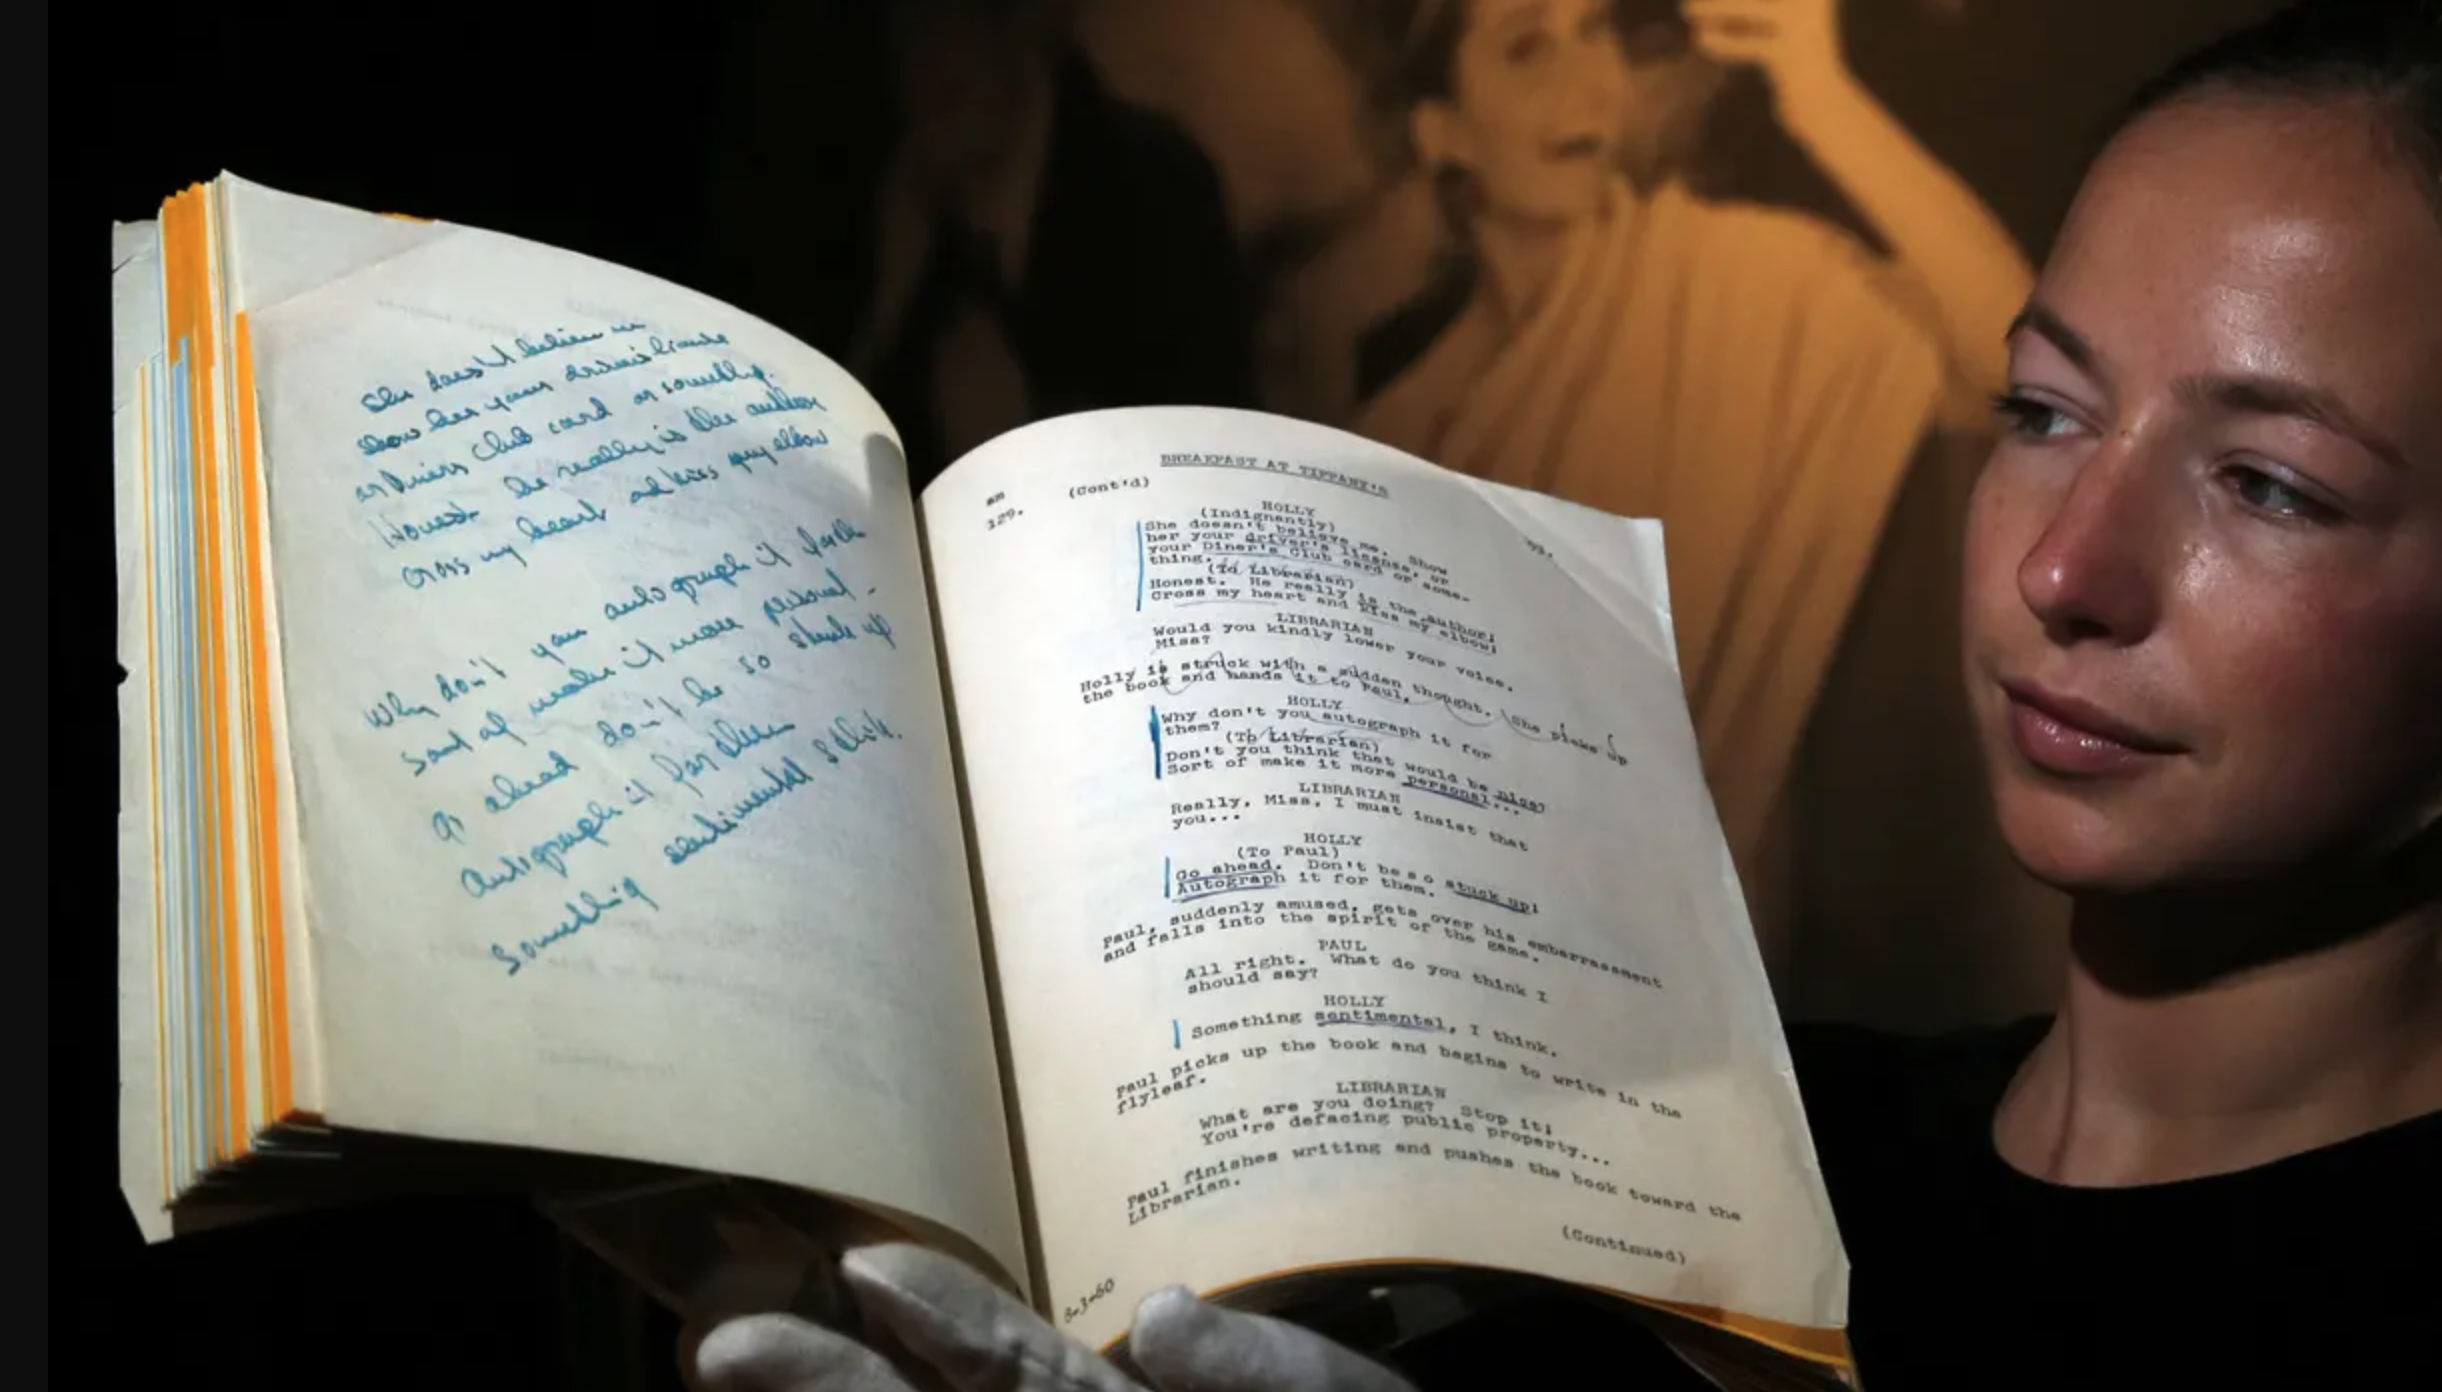 She doesn't believe me
show her your driver's license
or Diners Club card or something.
Honest. He really is the author
cross my heart and kiss my elbow
Why don't you autograph it for them
sort of make it more personal -
go ahead don't be so stuck up
Autograph it for them
Something sentimental I think.
BREAKPAST AT TIFFANY'S
129. (Cont'd)
93.
HOLLY
(Indignantly)
She doesn't believe me. Show
her your driver's lisense, or
your Diner's Club card or some-
thing.
(To Librarian)
Honest. He really is the author!
Cross my heart and kiss my elbow!
LIBRARIAN
Would you kindly lower your voice,
Miss?
Holly is struck with a sudden thought. She picks up
the book and hands it to Paul.
HOLLY
Why don't you autograph it for
them?
(To Librarian)
Don't you think that would be nice?
Sort of make it more personal...
LIBRARIAN
Really, Miss, I must insist that
you...
HOLLY
(To Paul)
Go ahead. Don't be so stuck up!
Autograph it for them.
Paul, suddenly amused, gets over his embarrassment
and falls into the spirit of the game.
PAUL
All right. What do you think I
should say?
HOLLY
Something sentimental, I think.
Paul picks up the book and begins to write in the
flyleaf.
LIBRARIAN
What are you doing? Stop it!
You're defacing public property...
Paul finishes writing and pushes the book toward the
Librarian.
(Continued)
8-3-60